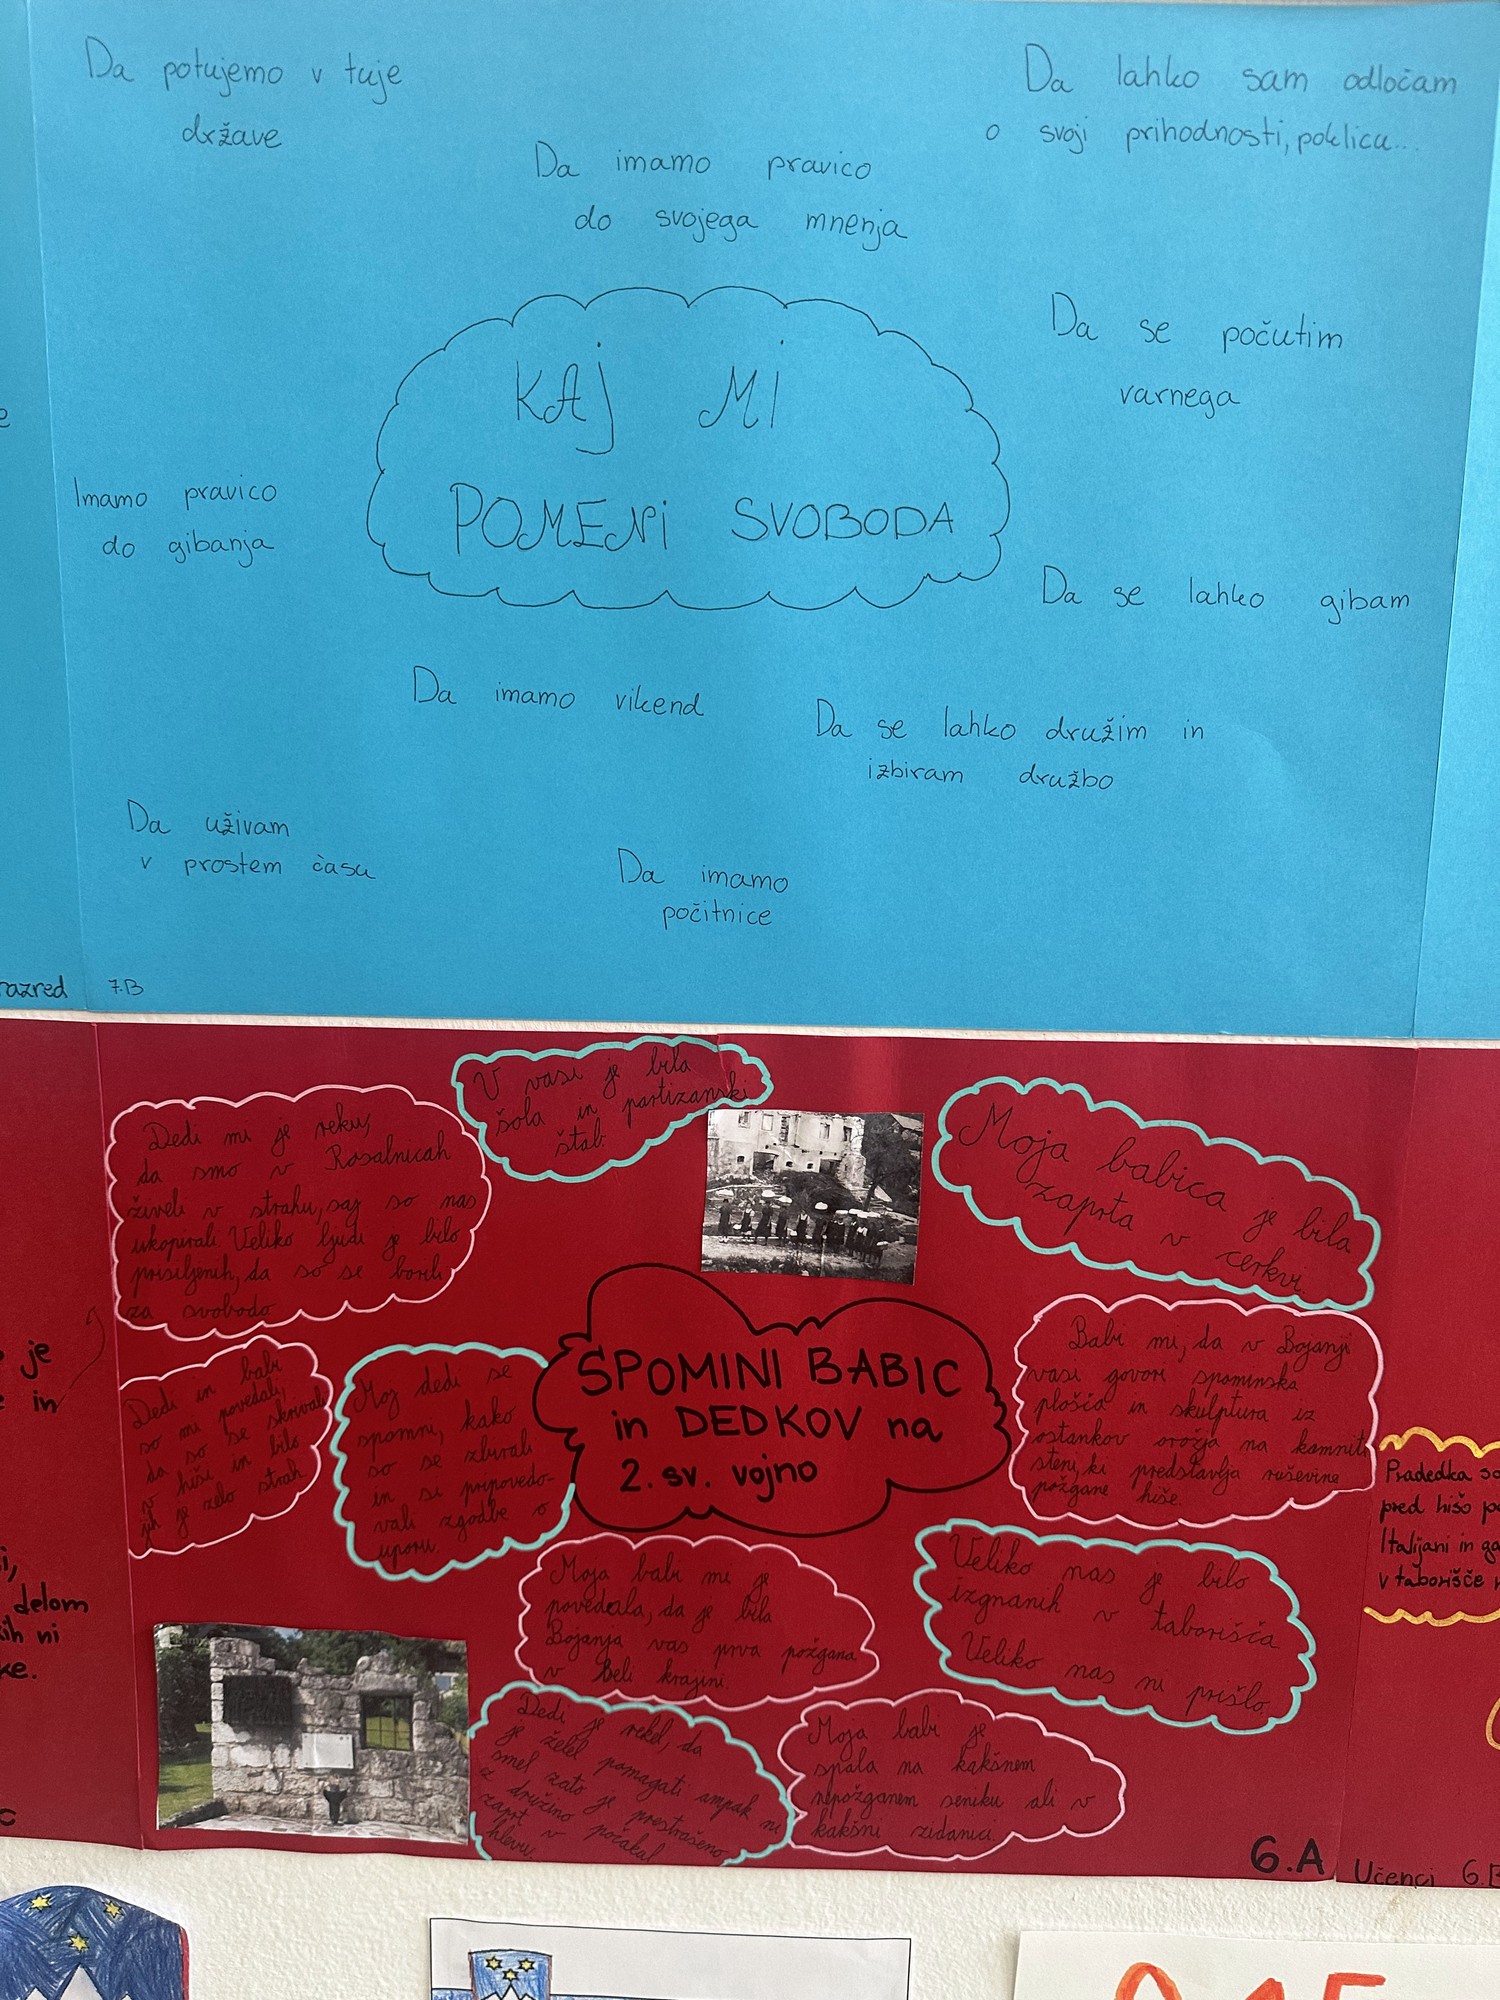 Da potujemo v tuje
države
Da lahko sam odločam
o svoji prihodnosti, poklicu...
Da imamo pravico
do svojega mnenja
Da se počutim
varnega
KAJ MI
POMENI SVOBODA
Imamo pravico
do gibanja
Da se lahko gibam
Da imamo vikend
Da se lahko družim in
izbiram družbo
Da uživam
v prostem času
Da imamo
počitnice
razred
7.B
V vasi je bila
šola in partizanski
štab.
Dedi mi je reku,
da smo v Rosalnicah
živeli v strahu, saj so nas
okupirali. Veliko ljudi je bilo
prisiljenih, da so se borili
za svobodo
Moja babica je bila
zaprta v cerkvi.
SPOMINI BABIC
in DEDKOV na
2. sv. vojno
Babi mi, da v Bojanji
vasi govori spominska
plošča in skulptura iz
ostankov orožja na kamniti
steni, ki predstavlja ruševine
požgane hiše.
Dedi in babi
so mi povedali,
da so se skrivali
v hiši in bilo
jih je zelo strah
Moj dedi se
spomni, kako
so se zbirali
in si pripovedo-
vali zgodbe o
uporu
Moja babi mi je
povedala, da je bila
Bojanja vas prva požgana
v Beli krajini.
Veliko nas je bilo
izgnanih v taborišča
Veliko nas ni prišlo.
Dedi je rekel, da
je želel pomagati ampak ni
smel zato je prestrašeno
z družino počakal
zaprt v
hlevu.
Moja babi je
spala na kakšnem
nepožganem seniku ali v
kakšni zidanici.
6.A
je
in
delom
ni
Pradedka so
pred hišo
Italijani in
v taborišče
Učenci 6.B